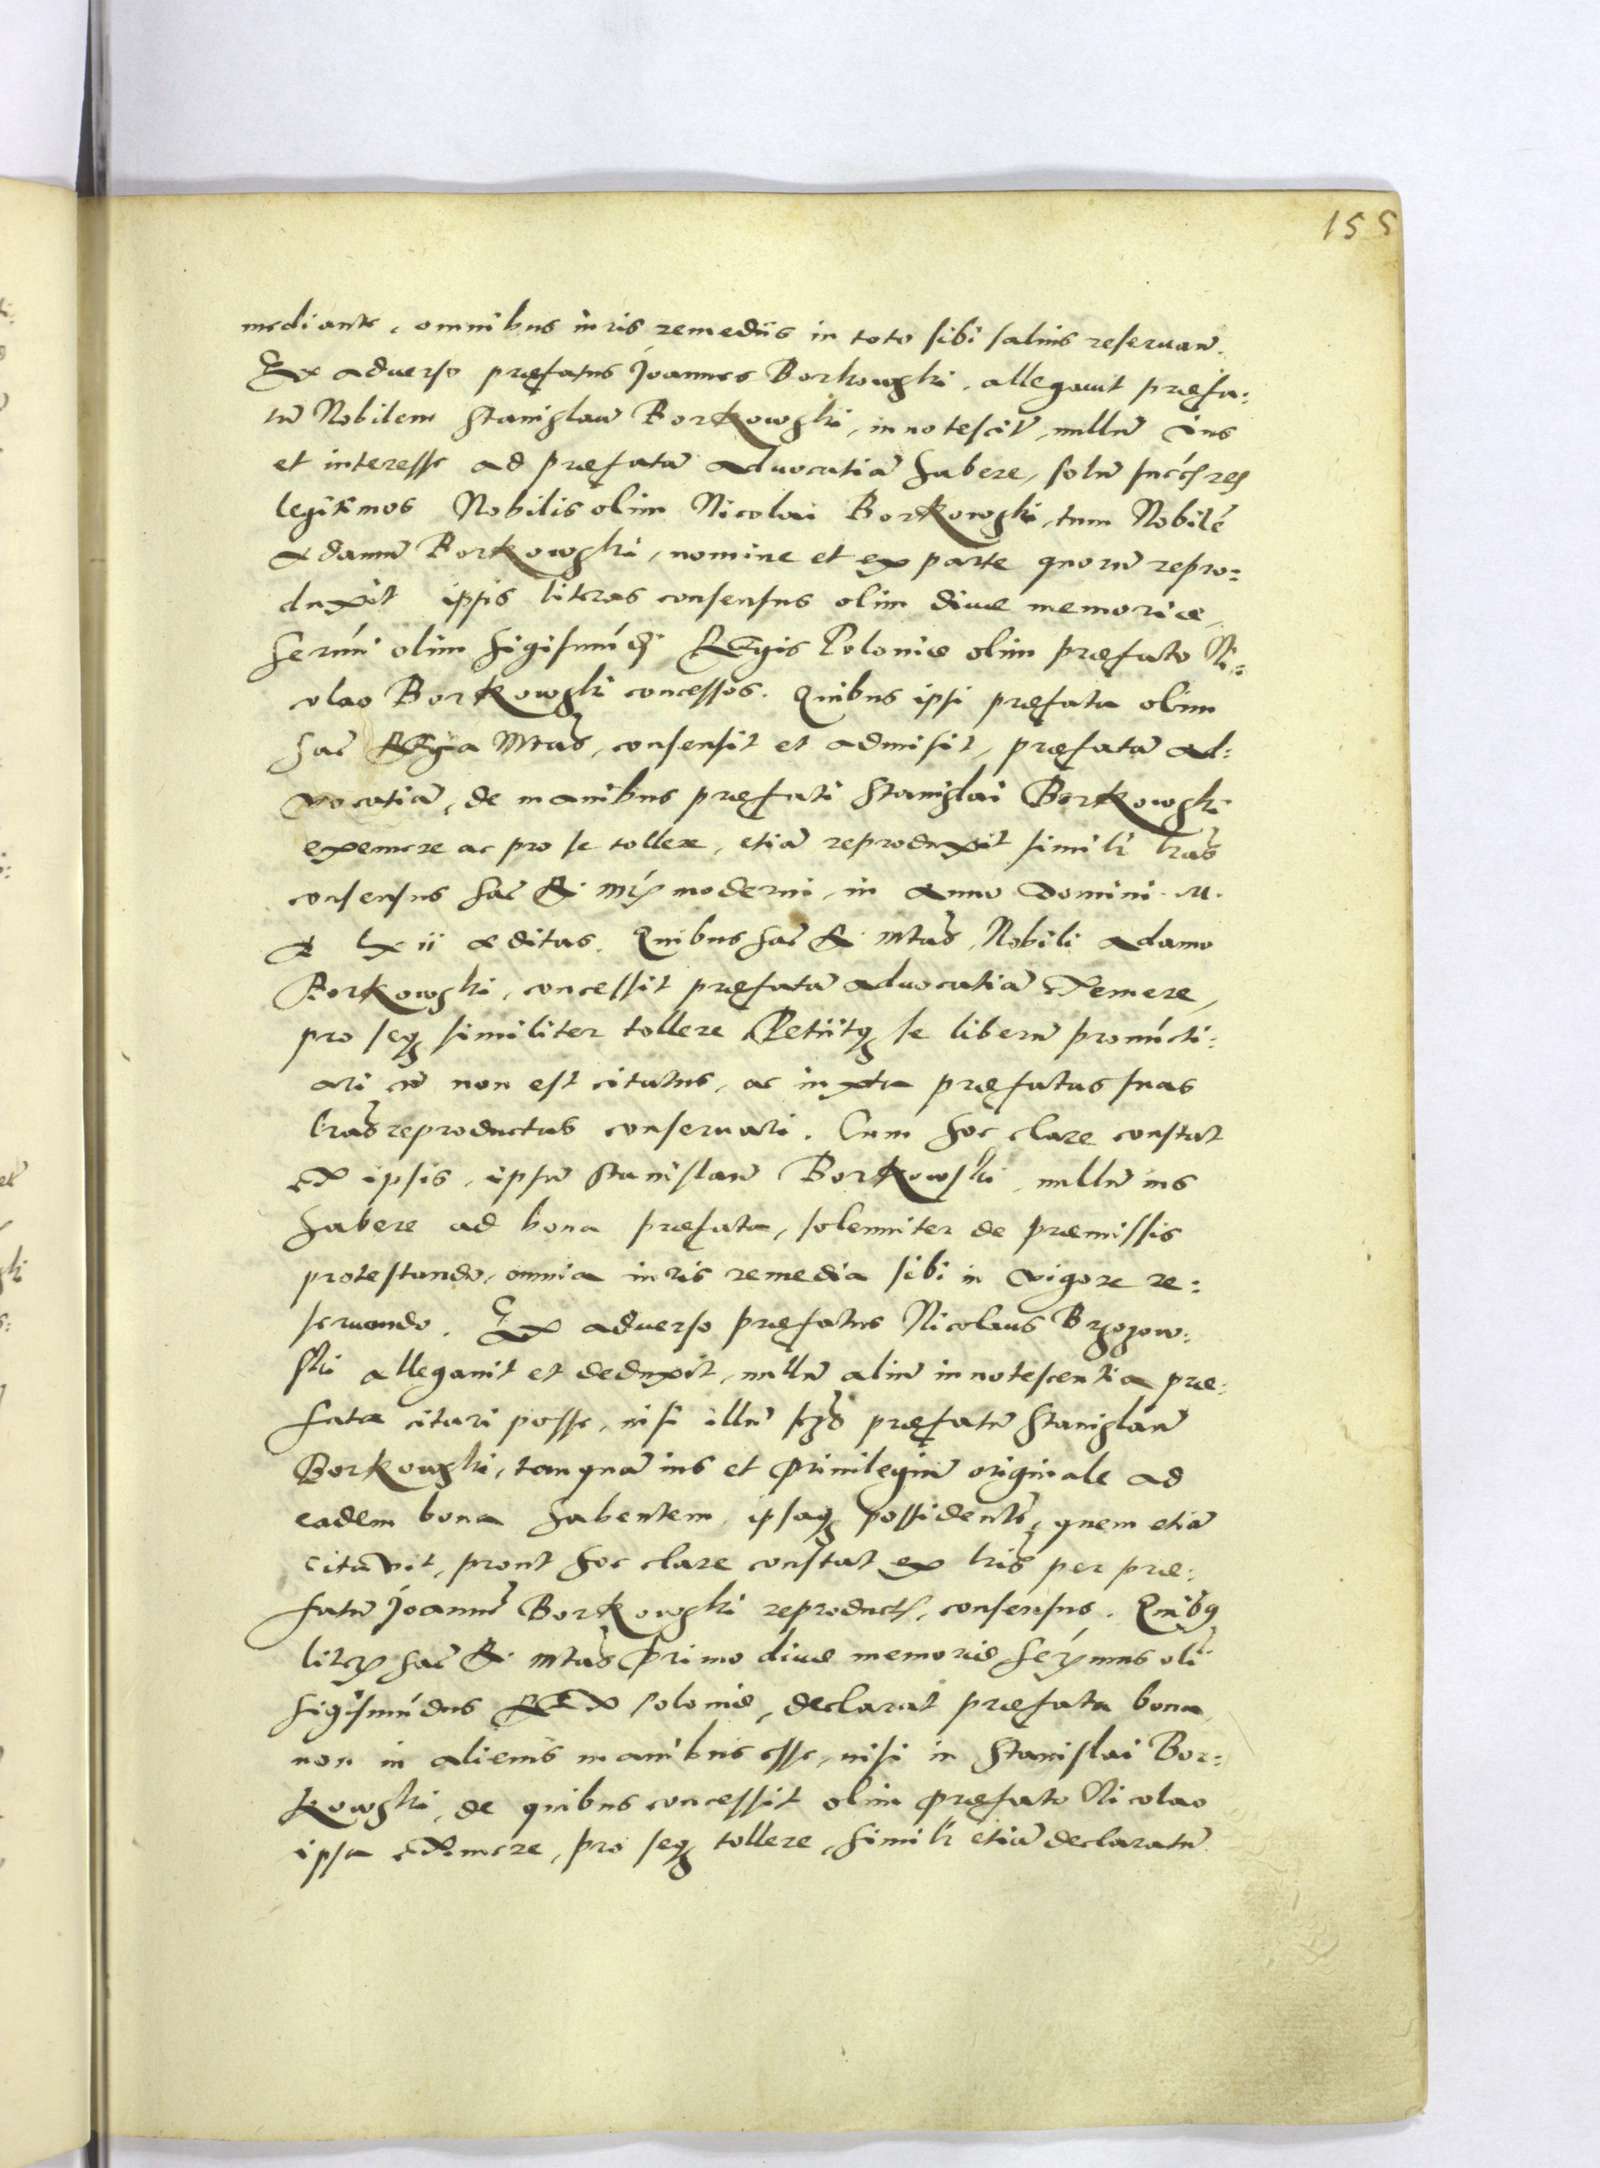 155
mediante, omnibus iuris remediis in toto sibi salvis reservan̄.
Ex adverso præfatus Joannes Borkowski, allegavit præfa:
tū Nobilem Stanislaū Borkowski, innotescit̄, nullū ius
et interesse ad præfatā advocatiā habere, solū succes̄res
legitimos Nobilis olim Nicolai Borkowski, tum Nobilē
Adamū Borkowski, nomine et ex parte quorū repro:
duxit ipsis literas consensus olim divæ memoriæ,
Serm̄i olim Sigismūdi REgis Poloniæ olim præfato Ni:
colao Borkowski concessos. Quibus ipsi præfata olim
Sac̄ REgia Mtas̄, consensit et admisit, præfatā ad:
vocatiā, de manibus præfati Stanislai Borkowski
exemere ac pro se tollere, etiā reproduxit simili lr̄as
consensus Sac̄ R. Mt̄is moderni, in Anno Domini. M.
D Lxii æditas. Quibus Sac̄ R. Mtas̄, Nobili Adamo
Borkowski, concessit præfatā advocatiā Exemere,
pro seq̄ similiter tollere Petiitq̄ se liberū pronūcti:
ari cū non est citatus, ac iuxta præfatas suas
lr̄as reproductas conservari. Cum hoc clare constat
Ex ipsis, ipsū Stanislaū Borkowski, nullū ius
habere ad bona præfata, solenniter de præmissis
protestando, omnia iuris remedia sibi in vigore re:
servando. Ex adverso præfatus Nicolaus Brzozow:
ski allegavit et deduxit, nullū aliū innotescentia præ:
fata citari posse, nisi illū præfatū Stanislaū
Borkowski, tamquā ius et Privilegiū originale ad
eadem bona habentem, ipsaq̄ possidentē, quem etiā
citavit, prout hoc clare constat ex lr̄is per præ:
fatū Joannē Borkowski reproduct̄, consensus. Quibq̄
literis Sac̄ R. Mtas̄ Primo divæ memoriæ Ser̄mus oli̅
Sigismūdus REX Poloniæ, declarat præfata bona
non in alienis manibus esse, nisi in Stanislai Bor:
kowski, de quibus concessit olim præfato Nicolao
ipsa Eximere, pro seq̄ tollere, Simili etiā declaratū